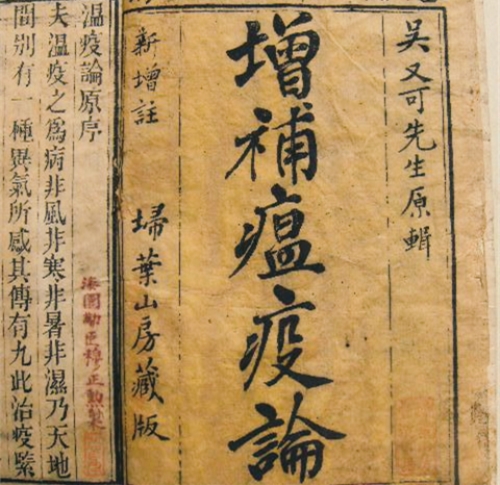 吳又可先生原輯
增補瘟疫論
新增註
埽葉山房藏版
溫疫論原序
夫溫疫之爲病非風非寒非暑非濕乃天地
間別有一種異氣所感其傳有九此治疫緊